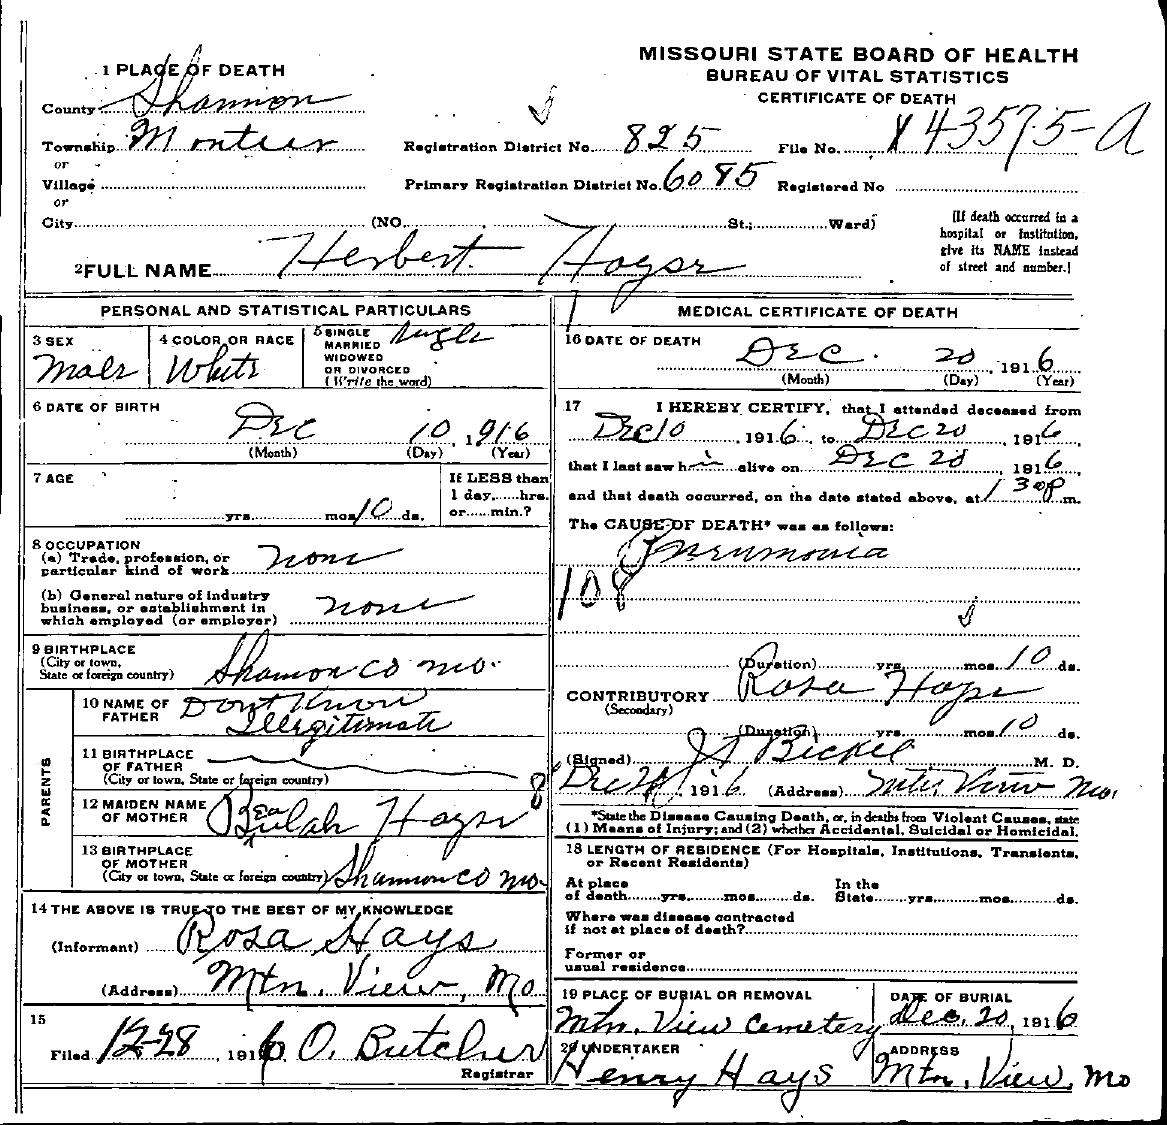 MISSOURI STATE BOARD OF HEALTH
BUREAU OF VITAL STATISTICS
CERTIFICATE OF DEATH
1 PLACE OF DEATH
County Shannon
Township Montier Registration District No. 825 File No. 43575-A
or
Village Primary Registration District No. 6085 Registered No
or
City (NO. St.; Ward)
(If death occurred in a
hospital or institution,
give its NAME instead
of street and number.)
2 FULL NAME Herbert Hayse
PERSONAL AND STATISTICAL PARTICULARS
3 SEX Male
4 COLOR OR RACE White
5 SINGLE
MARRIED
WIDOWED
OR DIVORCED
(Write the word) Single
6 DATE OF BIRTH
Dec 10, 1916
(Month) (Day) (Year)
7 AGE
yrs. mos. 10 ds.
If LESS than
1 day, hrs.
or min.?
8 OCCUPATION
(a) Trade, profession, or
particular kind of work none
(b) General nature of industry
business, or establishment in
which employed (or employer) none
9 BIRTHPLACE
(City or town,
State or foreign country) Shannon co mo.
PARENTS
10 NAME OF
FATHER Dont Know
Illegitimate
11 BIRTHPLACE
OF FATHER
(City or town, State or foreign country)
12 MAIDEN NAME
OF MOTHER Beulah Hayse
13 BIRTHPLACE
OF MOTHER
(City or town, State or foreign country) Shannon co mo.
14 THE ABOVE IS TRUE TO THE BEST OF MY KNOWLEDGE
(Informant) Rosa Hays
(Address) Mtn. View, Mo
15
Filed 12-28, 1916 O. Butcher
Registrar
MEDICAL CERTIFICATE OF DEATH
16 DATE OF DEATH
Dec. 20, 1916
(Month) (Day) (Year)
17 I HEREBY CERTIFY, that I attended deceased from
Dec 10, 1916, to Dec 20, 1916
that I last saw him alive on Dec 20, 1916,
and that death occurred, on the date stated above, at 1 30 p m.
The CAUSE OF DEATH* was as follows:
Pneumonia
108
(Duration) yrs. mos. 10 ds.
CONTRIBUTORY Rosa Hayse
(Secondary)
(Duration) yrs. mos. 10 ds.
(Signed) Bickel M. D.
Dec 20, 1916 (Address) View Mo.
*State the Disease Causing Death, or, in deaths from Violent Causes, state
(1) Means of Injury; and (2) whether Accidental, Suicidal or Homicidal.
18 LENGTH OF RESIDENCE (For Hospitals, Institutions, Transients,
or Recent Residents)
At place
of death yrs. mos. ds. In the
State yrs. mos. ds.
Where was disease contracted
if not at place of death?
Former or
usual residence
19 PLACE OF BURIAL OR REMOVAL
Mtn. View Cemetery
DATE OF BURIAL
Dec. 20, 1916
20 UNDERTAKER
Henry Hays
ADDRESS
Mtn. View, Mo